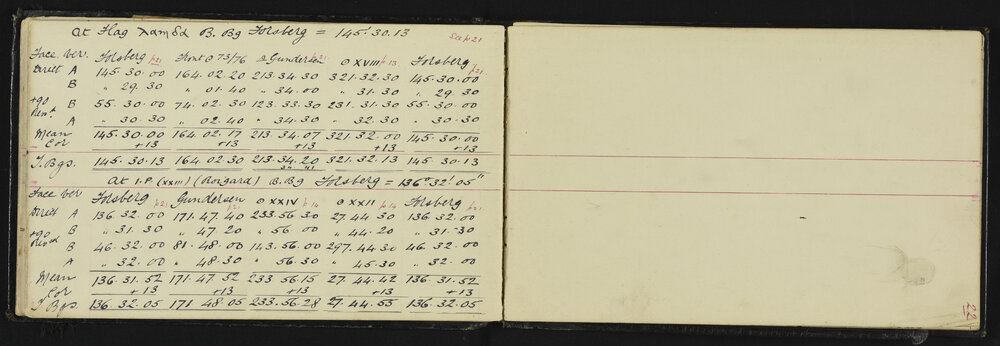 At Flag Radm Sd B. Bg Forsberg = 145.30.13 See p 21
Face. Ver. Forsberg p21 Front ⊙ 73/76 Gundersen p21 ⊙ XVIII p13 Forsberg p21
Direct A 145.30.00 164.02.20 213.34.30 321.32.30 145.30.00
B " 29.30 " 01.40 " 34.00 " 31.30 " 29.30
+90 B 55.30.00 74.02.30 123.33.30 231.31.30 55.30.00
A " 30.30 " 02.40 " 34.30 " 32.30 " 30.30
Mean 145.30.00 164.02.17 213.34.07 321 32.00 145.30.00
Cor +13 +13 +13 +13 +13
T. Bgs. 145.30.13 164.02 30 213.34.20 321.32.13 145.30.13
At I.P. (XXIII) (Borgard) B. Bg Forsberg = 136° 32' 05"
Face Ver Forsberg p21 Gundersen p21 ⊙ XXIV p14 ⊙ XXII p14 Forsberg p21
Direct A 136 32.00 171.47.40 233.56 30 27 44 30 136 32.00
B " 31.30 " 47 20 " 56 00 " 44.20 " 31.30
+90 Revsd B 46.32.00 81.48.00 143.56.00 297.44 30 46.32.00
A " 32.00 " 48.30 " 56 30 " 45.30 " 32.00
Mean 136.31.52 171 47.52 233 56.15 27.44.42 136.31.52
Cor +13 +13 +13 +13 +13
T. Bgs. 136 32.05 171 48.05 233.56.28 27.44.55 136.32.05
22